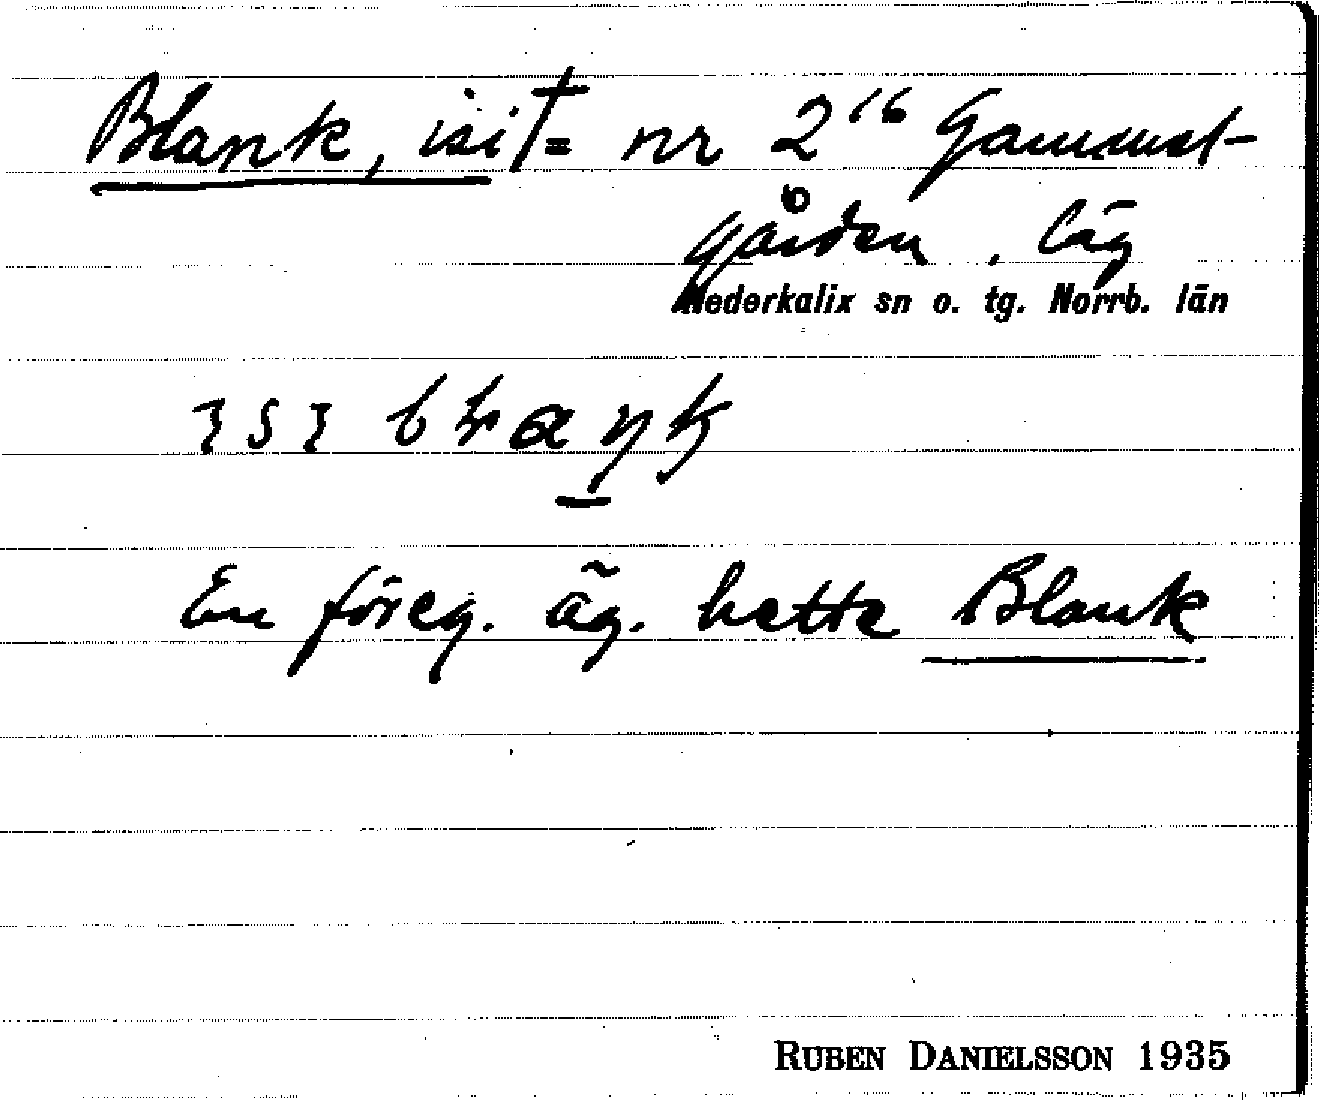 Blank, isi† = nr 2¹⁶ Gammel-
gården, läg
Nederkalix sn o. tg. Norrb. län
En föreg. äg. hette Blank
RUBEN DANIELSSON 1935